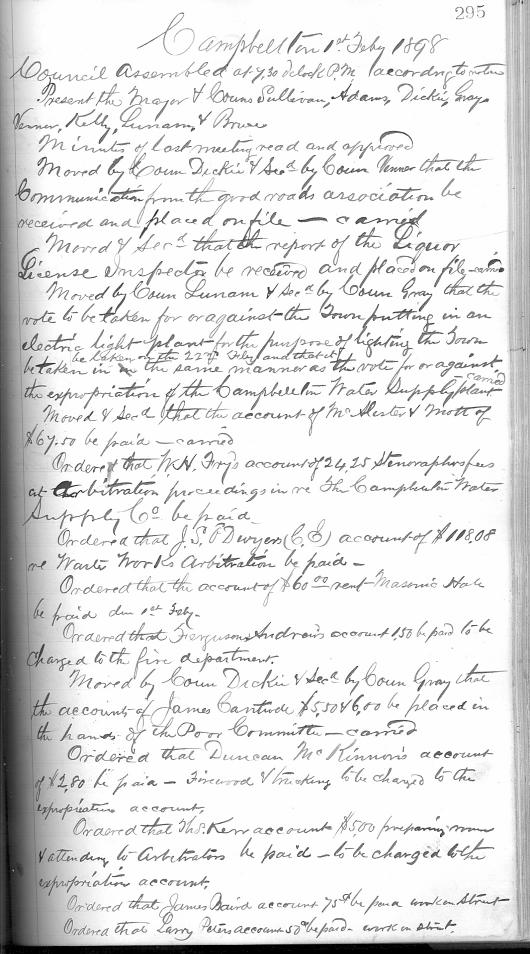 295
Campbellton 1st Feby 1898
Council Assembled at 7.30 oclock P.M. according to
Present the Mayor & Couns Sullivan, Adams, Dickie, Gray
Venner, Kelly, Lunam, & Bruce
Minutes of last meeting read and approved
Moved by Coun Dickie & Secd by Coun Venner that the
Communication from the good roads association be
received and placed on file — carried
Moved & Secd that the report of the Liquor
License Inspector be received and placed on file — carried
Moved by Coun Lunam & Secd by Coun Gray that the
vote to be taken for or against the Town putting in an
electric light plant for the purpose of lighting the Town
be taken on the 22nd Feby and that it
be taken in the same manner as the vote for or against
the expropriation of the Campbellton Water Supply plant carried
Moved & Secd that the account of McAlister & Mott of
$67.50 be paid — carried
Ordered that W.H. Fry's account of 24.25 Stenographers fees
at Arbitration proceedings in re The Campbellton Water
Supply Co. be paid
Ordered that J.S. P Dwyers (C.E) account of $118.08
re Water Works Arbitration be paid —
Ordered that the account of $60.00 rent Masonic Hall
be paid due 1st Feby.
Ordered that Ferguson Andrew's account 1.50 be paid to be
charged to the fire department.
Moved by Coun Dickie & Secd by Coun Gray that
the accounts of James $5.50 & 6.00 be placed in
the hands of the Poor Committee — carried
Ordered that Duncan McKinnon's account
of $2.80 be paid — Firewood & trucking to be charged to the
expropriation account.
Ordered that Thos. Kerr account $5.00 preparing room
& attending to Arbitrators be paid — to be charged to the
expropriation account.
Ordered that James Baird account 75¢ be paid work on Street
Ordered that Larry Peters account 50¢ be paid — work on street.